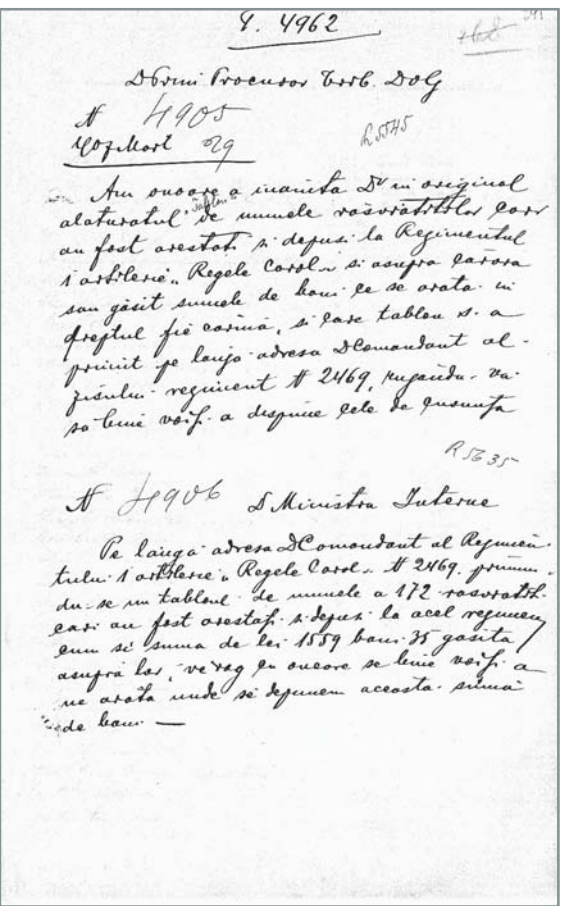 I. 4962
D Prim Procuror Trib. Dolj
N 4905
907 Mart 29
R 5545
Am onoare a inainta Dv in original
alaturatul "tablou" de numele răsvrătitilor cari
au fost arestati si depusi la Regimentul
1 artilerie "Regele Carol" si asupra carora
sau găsit sumele de bani ce se arata in
dreptul fie caruia, si care tablou s. a
primit pe langa adresa DComandant al
zisului regiment N 2469, rugandu-va
să bine voiți a dispune cele de cuvință
R 5635
N 4906 D Ministru Interne
Pe lângă adresa DComandant al Regimen-
tului 1 artilerie "Regele Carol" N 2469, primin
du-se un tabloul de numele a 172 rasvratiti
cari au fost arestati si depusi la acel regiment
cum si suma de lei 1559 bani 35 gasita
asupra lor, ve rog cu onoare se bine voiți a
ne arăta unde se depunem aceasta sumă
de bani —